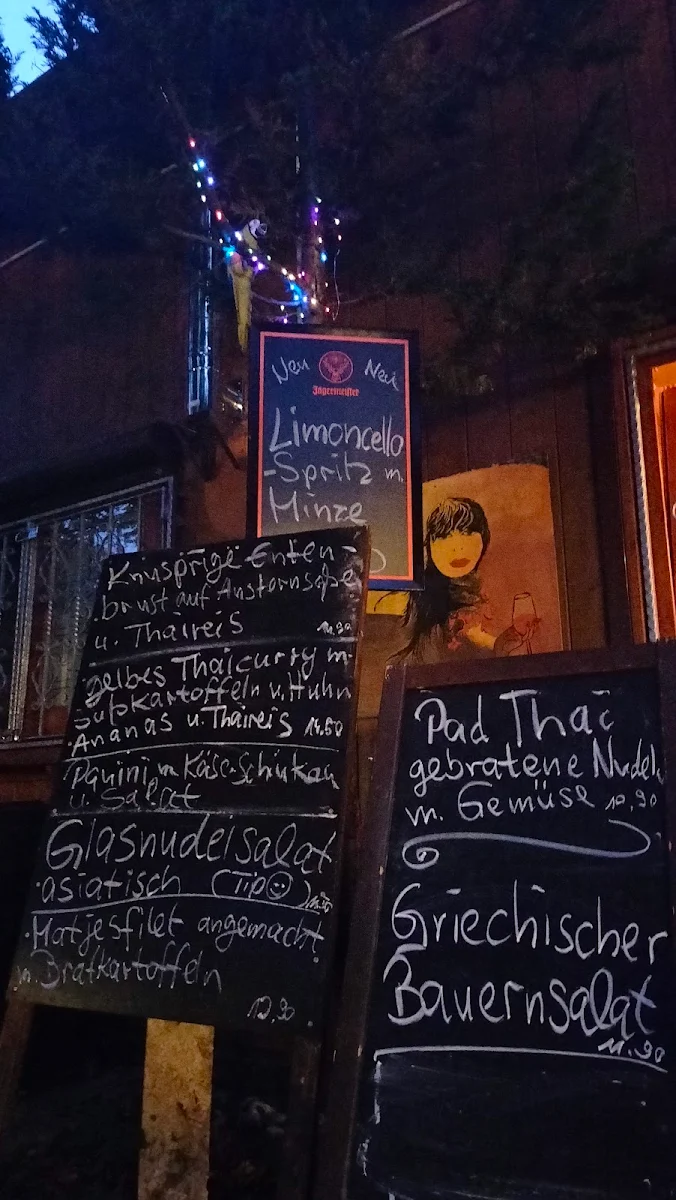 Neu Neu
Jägermeister
Limoncello
-Spritz m.
Minze
Knusprige Enten-
brust auf Austernsoße
u. Thaireis
gelbes Thaicurry m.
Süßkartoffeln u. Huhn
Ananas u. Thaireis 14.50
Panini m. Käse-Schinken
u. Salat
Glasnudelsalat
asiatisch (Tip☺)
Matjesfilet angemacht
m. Bratkartoffeln
12,90
Pad Thai
gebratene Nudeln
m. Gemüse 10,90
Griechischer
Bauernsalat
11.90